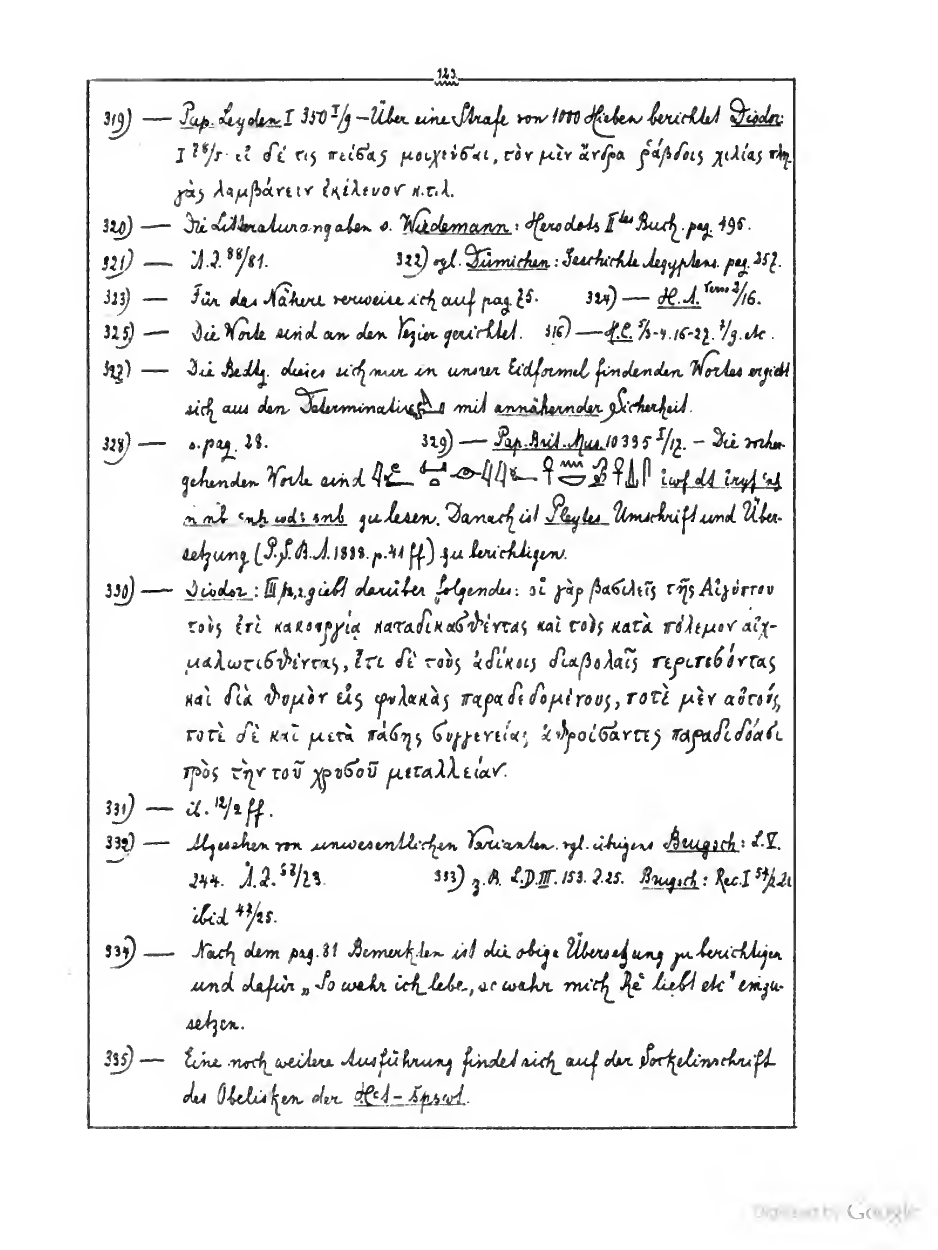 123.
319) — Pap. Leyden I 350 I/9 – Über eine Strafe von 1000 Hieben berichtet Diodor:
I 78/5. εἰ δέ τις πείσας μοιχεύσαι, τὸν μὲν ἄνδρα ῥάβδοις χιλίας πλη-
γὰς λαμβάνειν ἐκέλευον κ.τ.λ.
320) — Die Litteraturangaben s. Wiedemann: Herodots II tes Buch. pag. 496.
321) — Ä.Z. 88/81. 322) vgl. Dümichen: Geschichte Aegyptens. pag. 357.
323) — Für das Nähere verweise ich auf pag. 75. 324) — H.A. Verso 2/16.
325) — Die Worte sind an den Vezier gerichtet. 316) — H.C. 5/3-4. 16-27. 7/9. etc.
327) — Die Bedtg. dieses sich nur in unsrer Eidformel findenden Wortes ergiebt
sich aus den Determinativen mit annähernder Sicherheit.
328) — s. pag. 28. 329) — Pap. Brit. Mus. 10335 I/17. – Die vorher-
gehenden Worte sind iwf dt iryf ꜥnḫ
n nb ꜥnḫ wdꜣ snb zu lesen. Danach ist Pleytes Umschrift und Über-
setzung (P.S.B.A. 1888. p. 41 ff) zu berichtigen.
330) — Diodor: III 12,2 giebt darüber folgendes: οἱ γὰρ βασιλεῖς τῆς Αἰγύπτου
τοὺς ἐπὶ κακουργίᾳ καταδικασθέντας καὶ τοὺς κατὰ πόλεμον αἰχ-
μαλωτισθέντας, ἔτι δὲ τοὺς ἀδίκοις διαβολαῖς περιπεσόντας
καὶ διὰ θυμὸν εἰς φυλακὰς παραδεδομένους, ποτὲ μὲν αὐτούς,
ποτὲ δὲ καὶ μετὰ πάσης συγγενείας ἀθροίσαντες παραδιδόασι
πρὸς τὴν τοῦ χρυσοῦ μεταλλείαν.
331) — il. 12/2 ff.
332) — Abgesehen von unwesentlichen Varianten. vgl. übrigens Brugsch: L.V.
244. Ä.Z. 53/23. 333) z.B. L.D. III. 153. Z. 25. Brugsch: Rec. I
ibid 43/25.
334) — Nach dem pag. 81 Bemerkten ist die obige Übersetzung zu berichtigen
und dafür „So wahr ich lebe, so wahr mich Rēʿ liebt etc" einzu-
setzen.
335) — Eine noch weitere Ausführung findet sich auf der Sockelinschrift
des Obelisken der Ḥꜥt-špswt.
Digitized by Google